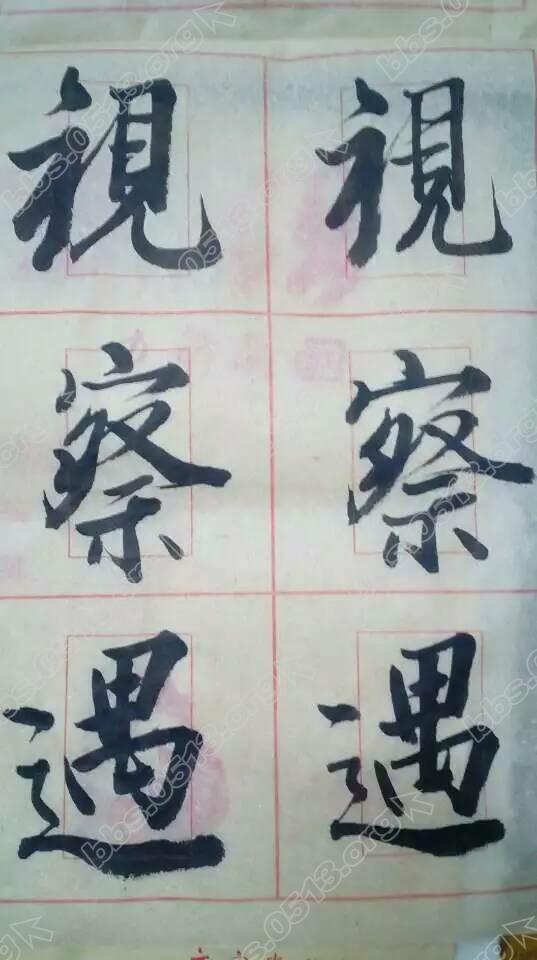 視察遇
視察遇
bbs.0513.org